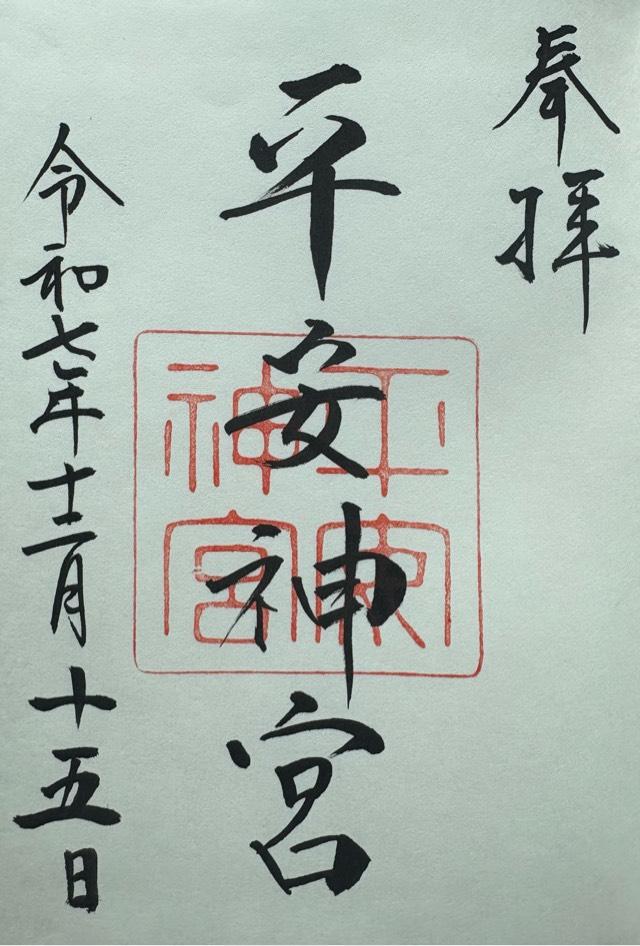 奉拝
平安神宮
令和七年十二月十五日
平安
神宮